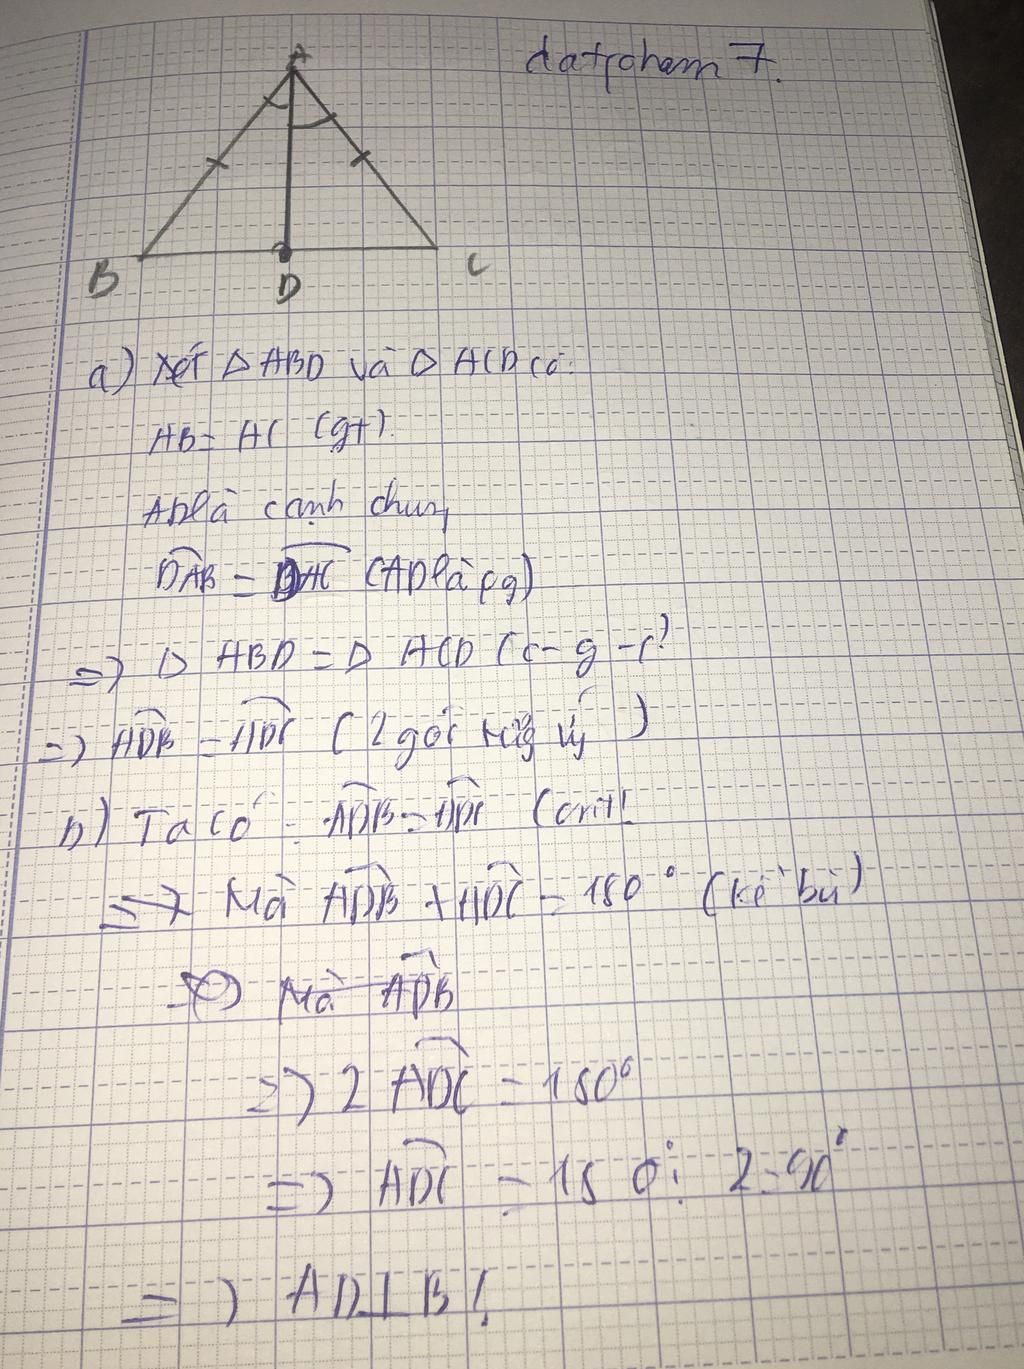 datpham 7.
A
B
D
C
a) Xét Δ ABD và Δ ACD có:
AB = AC (gt).
AD là cạnh chung
DAB = DAC (AD là pg)
=> Δ ABD = Δ ACD (c-g-c)
=> ADB = ADC (2 góc tứg ứ)
b) Ta có: ADB = ADC (cmt)
=> Mà ADB + ADC = 180° (kề bù)
=> Mà ADB
=> 2 ADC = 180°
=> ADC = 180°: 2 = 90°
=> AD⊥BC